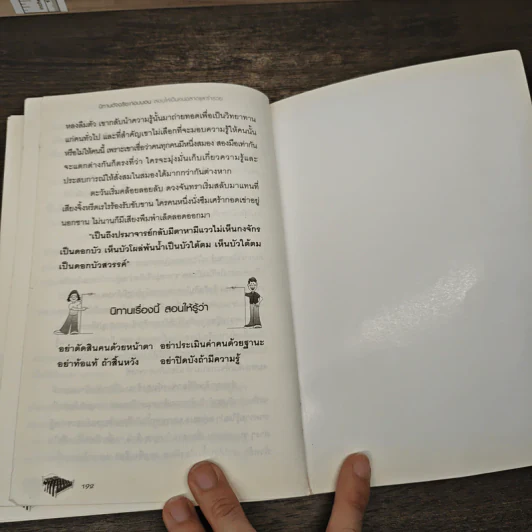 หลงลืมตัว เขากลับนำความรู้นั้นมาถ่ายทอดเพื่อเป็นวิทยาทาน
แก่คนทั่วไป และที่สำคัญเขาไม่เลือกที่จะมอบความรู้ให้คนนั้น
หรือไม่ให้คนนี้ เพราะเขาเชื่อว่าคนทุกคนมีหนึ่งสมอง สองมือเท่ากัน
จะแตกต่างกันก็ตรงที่ว่า ใครจะมุ่งมั่นเก็บเกี่ยวความรู้และ
ประสบการณ์ให้สั่งสมในสมองได้มากกว่ากันต่างหาก
ตะวันเริ่มคล้อยลอยลับ ดวงจันทราเริ่มสลับมาแทนที่
เสียงจิ้งหรีดเรไรร้องรับขับขาน ใครคนหนึ่งนั่งซึมเศร้ากอดเข่าอยู่
นอกชาน ไม่นานก็มีเสียงพึมพำเล็ดลอดออกมา
"เป็นถึงปรมาจารย์กลับมีตาหามีแววไม่เห็นกงจักร
เป็นดอกบัว เห็นบัวโผล่พ้นน้ำเป็นบัวใต้ตม เห็นบัวใต้ตม
เป็นดอกบัวสวรรค์"
นิทานเรื่องนี้ สอนให้รู้ว่า
อย่าตัดสินคนด้วยหน้าตา อย่าประเมินค่าคนด้วยฐานะ
อย่าท้อแท้ ถ้าสิ้นหวัง อย่าปิดบังถ้ามีความรู้
198